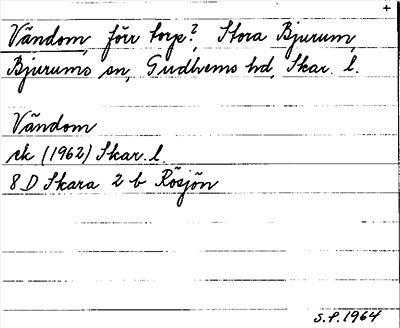 +
Vändom, förr torp?, Stora Bjurum,
Bjurums sn, Gudhems hd, Skar. l.
Vändom
ek (1962) Skar. l.
8 D Skara 2 b Rösjön
S.P. 1964